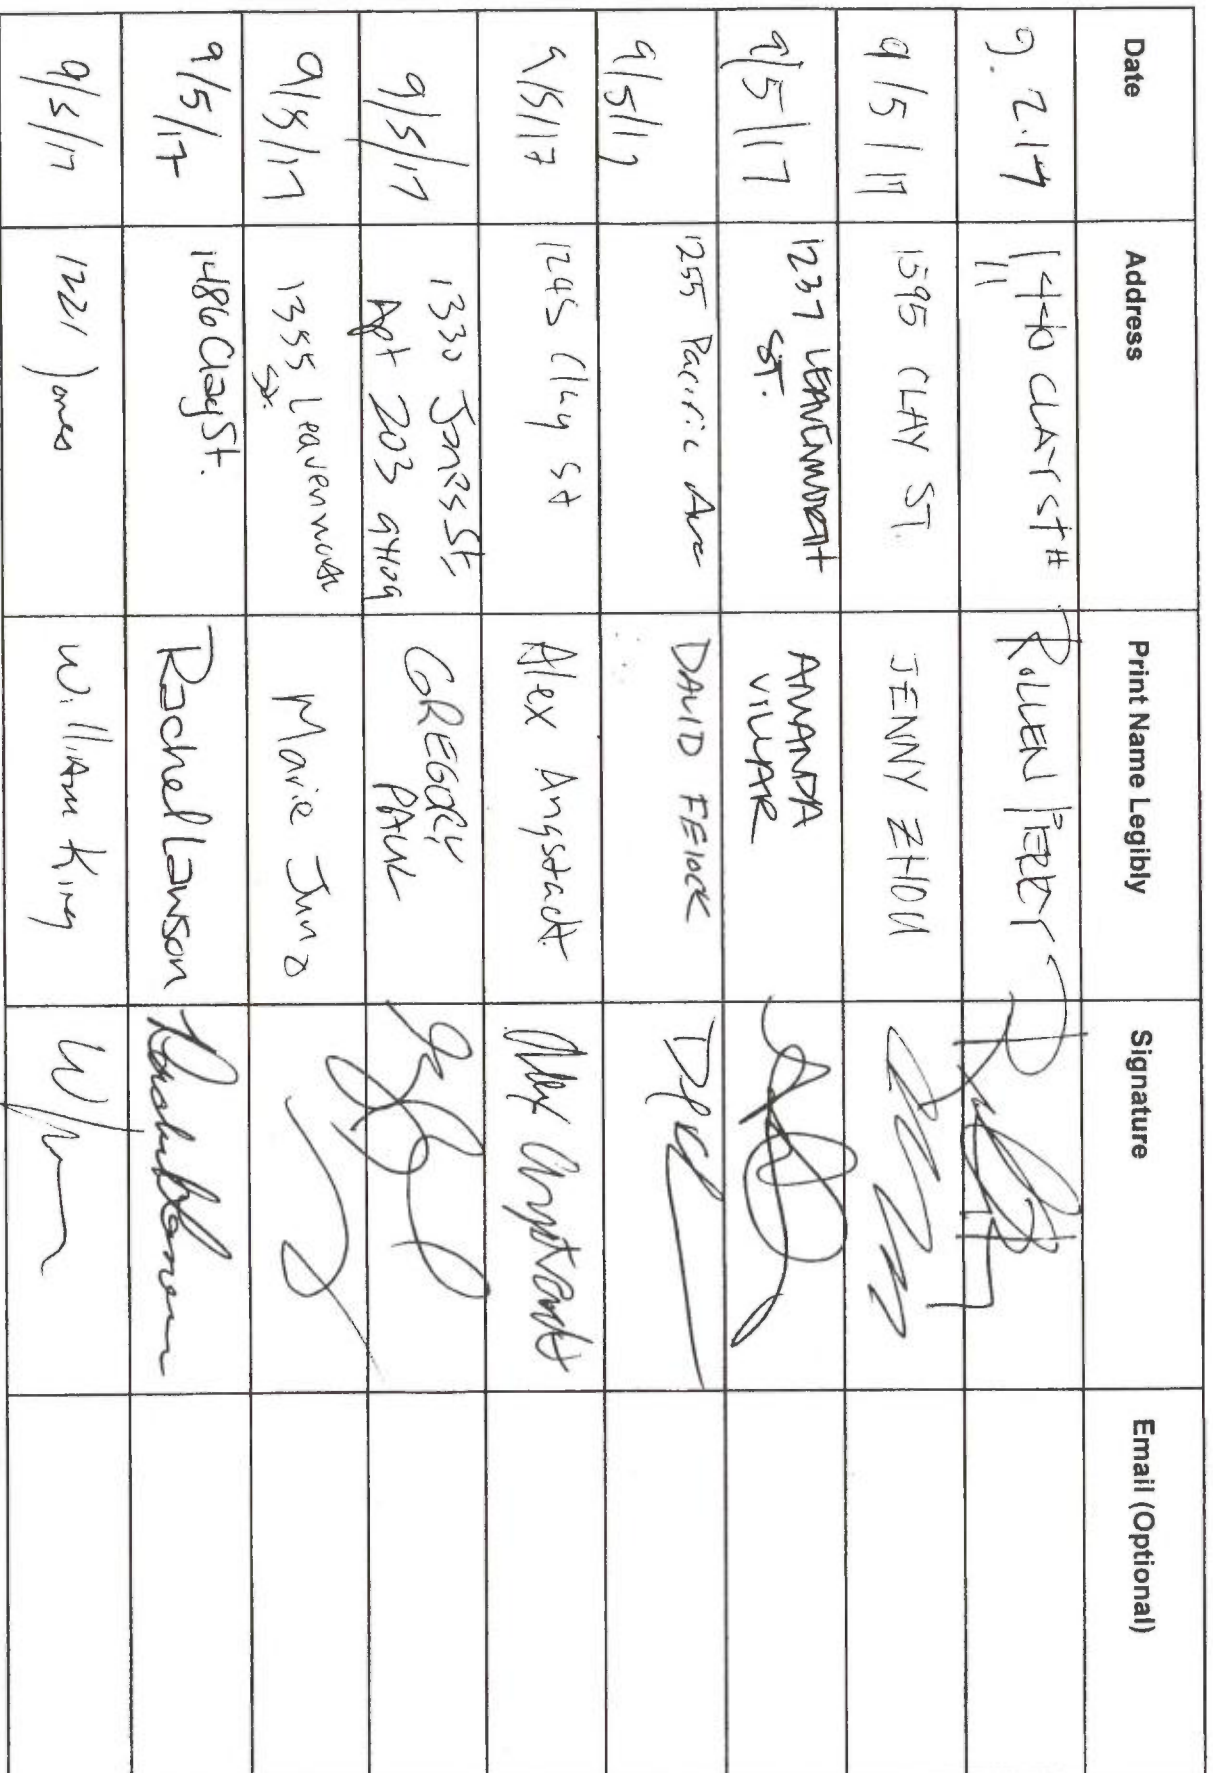 Date Address Print Name Legibly Signature Email (Optional)
9.2.17 1440 CLAY ST #
11
9/5/17 1595 CLAY ST. JENNY ZHOU
9/5/17 1237 LEAVENWORTH
ST. AMANDA
VILLAR
9/5/17 1255 Pacific Ave DAVID FEIOCK
9/5/17 1245 Clay St Alex Angstadt Alex Angstadt
9/5/17 1330 Jones St. GREGORY
Apt 203 94109 PAUL
9/5/17 1355 Leavenworth Marie Jung
St.
9/5/17 1486 Clay St. Rachel Lawson Rachel Lawson
9/5/17 1221 Jones William King